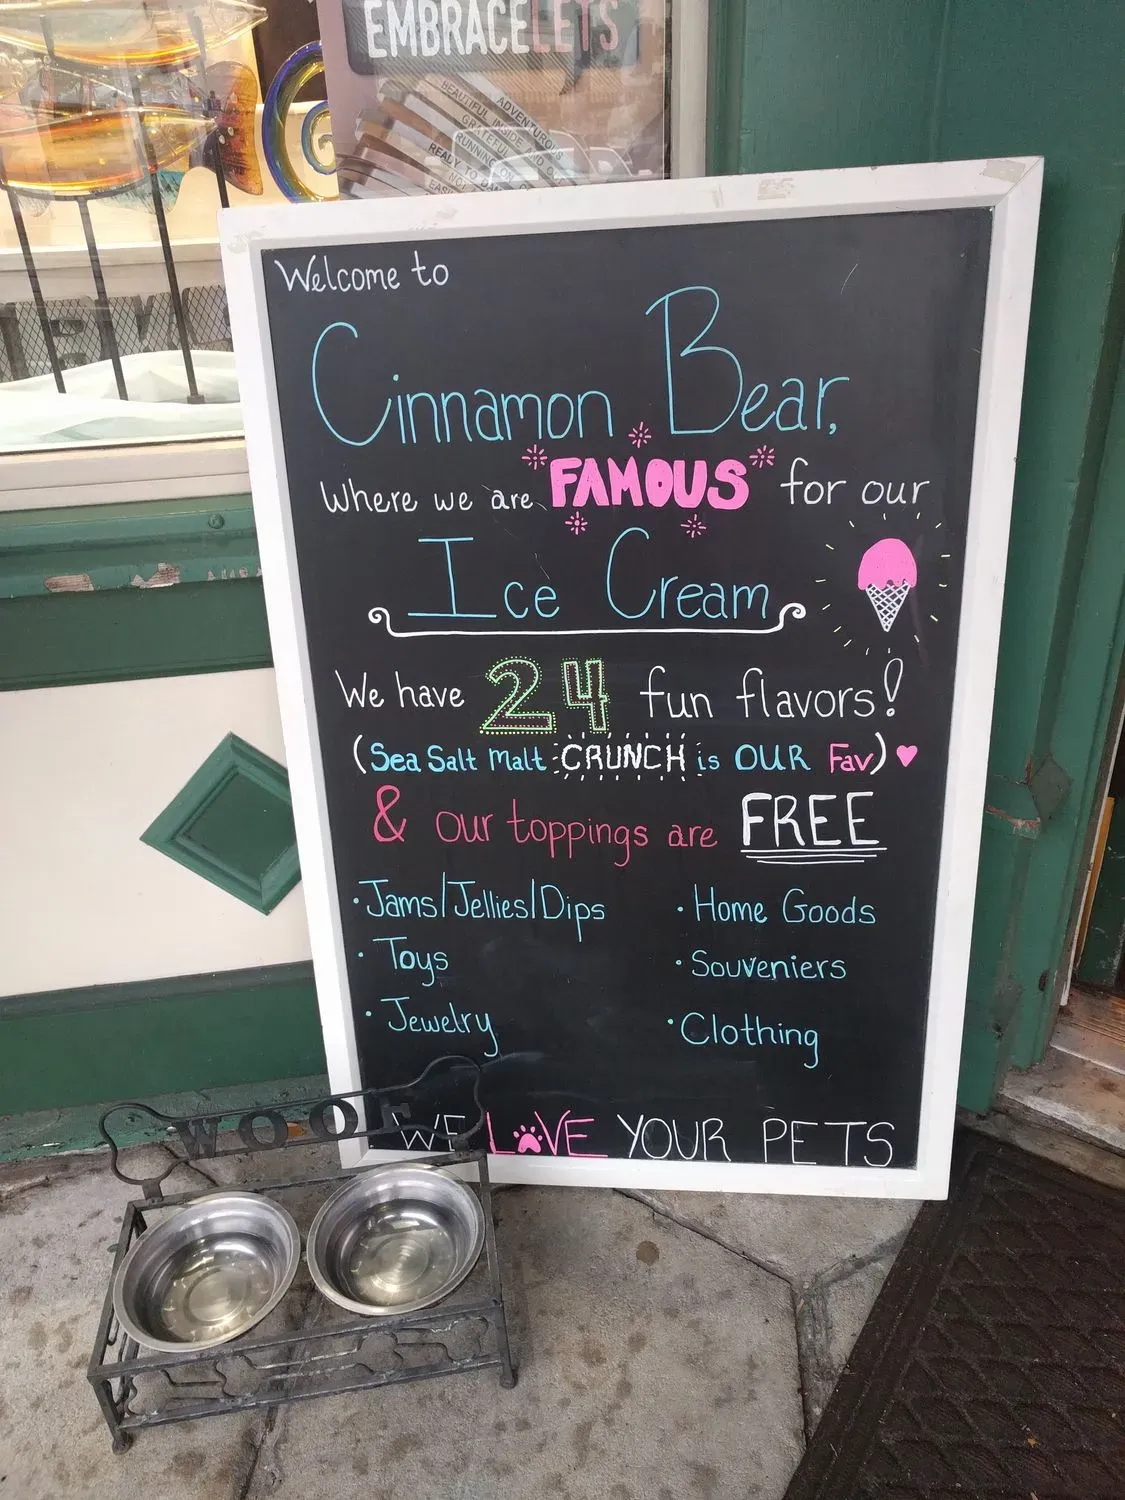 EMBRACELETS
ADVENTUROUS
BEAUTIFUL INSIDE AND
GRATEFUL
RUNNING ON
READY TO
Welcome to
Cinnamon Bear,
where we are FAMOUS for our
Ice Cream
We have 24 fun flavors!
(Sea Salt Malt CRUNCH is OUR Fav)
& our toppings are FREE
• Jams/Jellies/Dips
• Home Goods
• Toys
• Souveniers
• Jewelry
• Clothing
WOOF
WE LOVE YOUR PETS